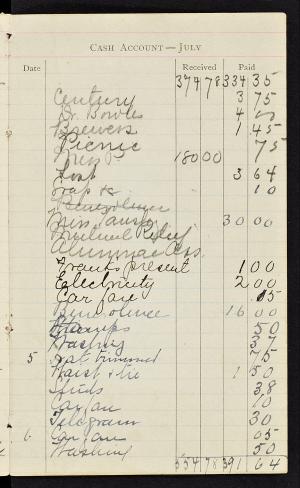 CASH ACCOUNT—JULY
Date Received Paid
374 78 334 35
Century 3 75
Dr. Bowles 4 00
Brewers 1 45
Picnic 75
180 00
Lost 3 64
10
Miss 30 00
Mutual Relief
Alumnae Ass.
Franks present 1 00
Electricity 2 00
Car fare 15
Benevolence 16 00
Stamps 50
Washing 37
5 Hat trimmed 75
Waist & tie 1 50
Studs 38
Car fare 10
Telegram 30
6 Car fare 05
Washing 50
554 78 391 64